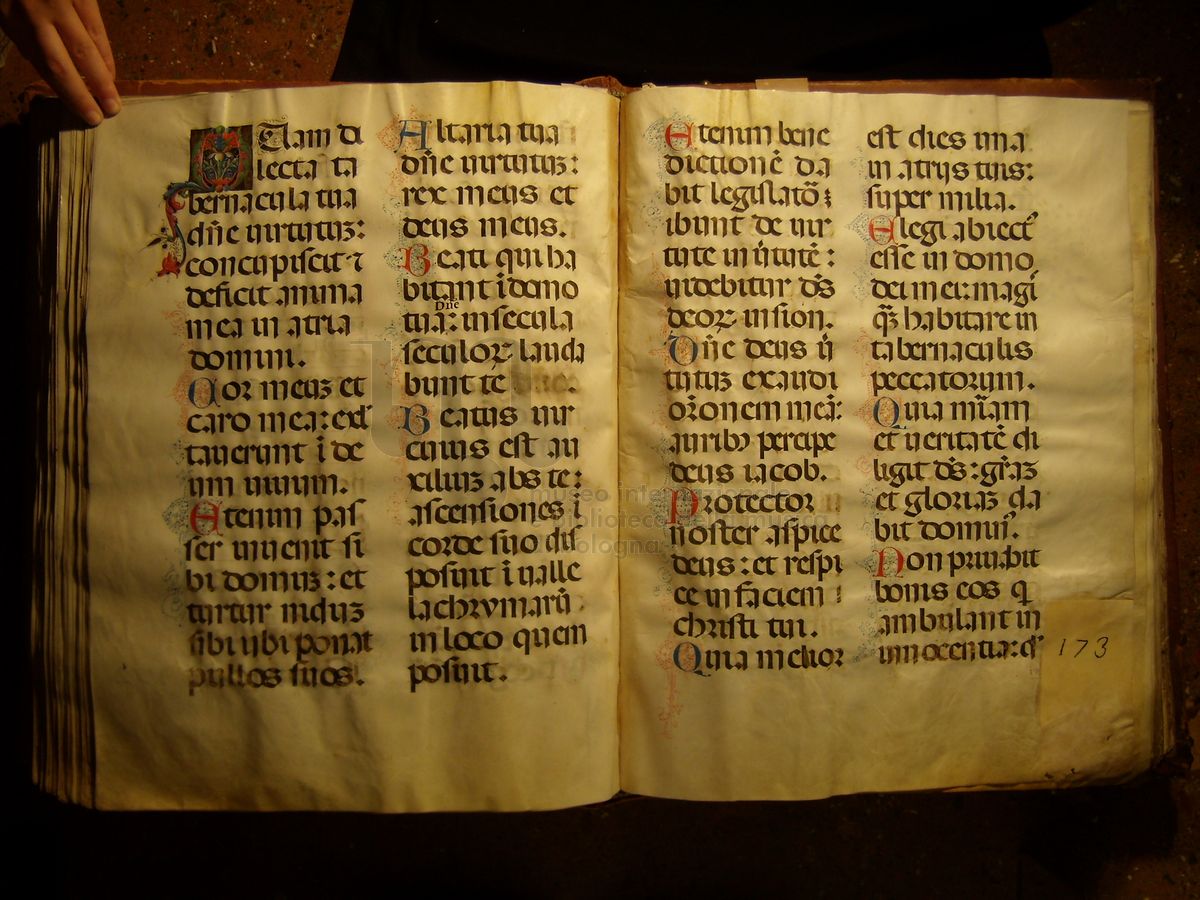 Quam di
lecta ta
bernacula tua
dn̄e uirtutuꝫ:
concupiscit ⁊
deficit anima
mea in atria
domini.
Cor meuꝫ et
caro mea: exl
tauerunt ī de
um uiuum.
Etenim pas
ser inuenit si
bi domuꝫ: et
turtur niduꝫ
sibi ubi ponat
pullos suos.
Altaria tua
dn̄e uirtutuꝫ:
rex meus et
deus meus.
Beati qui ha
bitant ī domo
Dn̄e
tua: in secula
seculoꝝ lauda
bunt te
Beatus uir
cuius est au
xiliuꝫ abs te:
ascensiones ī
corde suo dis
posuit ī ualle
lachrymarū
in loco quem
posuit.
Etenim bene
dictionē da
bit legislatō ꝛ
ibunt de uir
tute in ūtutē:
uidebitur dꝰs
deoꝝ in sion.
Dn̄e deus ū
tutuꝫ exaudi
or̄onem meā:
auribꝫ percipe
deus iacob.
Protector
noster aspice
deus: et respi
ce in faciem
christi tui.
Quia melior
est dies una
in atrijs tuis:
super milia.
Elegi abiect᷒
esse in domo
dei mei: magi
qꝫ habitare in
tabernaculis
peccatorum.
Quia mīam
et ueritatē di
ligit dꝰs: gr̄aꝫ
et gloriaꝫ da
bit domin᷒.
Non priuabit
bonis eos q
ambulant in
innocentia: d
173
museo inter
biblioteca
bologna